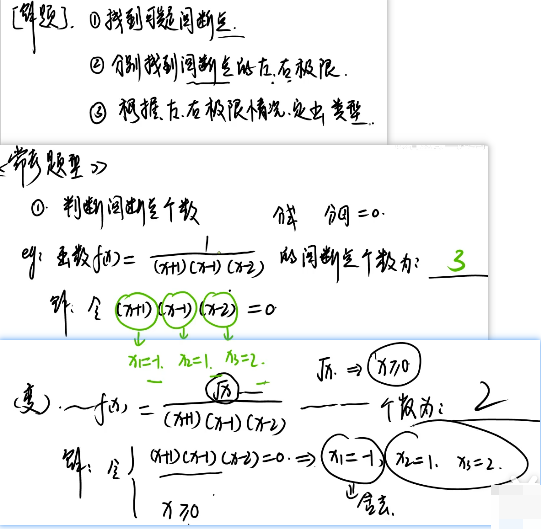 [解题]. ①找到可疑间断点.
②分别找到间断点的左.右极限.
③根据左.右极限情况.定出类型.
<常考题型>>
① 判断间断点个数 分式 分母=0.
eg: 函数f(x)= 1/(x+1)(x-1)(x-2) 的间断点个数为: 3
解: 令 (x+1)(x-1)(x-2) =0
x₁=-1. x₂=1. x₃=2.
√x ⇒ x≥0
(变). ~f(x) = √x/(x+1)(x-1)(x-2) 个数为: 2
解: 令 { (x+1)(x-1)(x-2)=0. ⇒ x₁=-1, x₂=1. x₃=2.
x≥0 舍去.